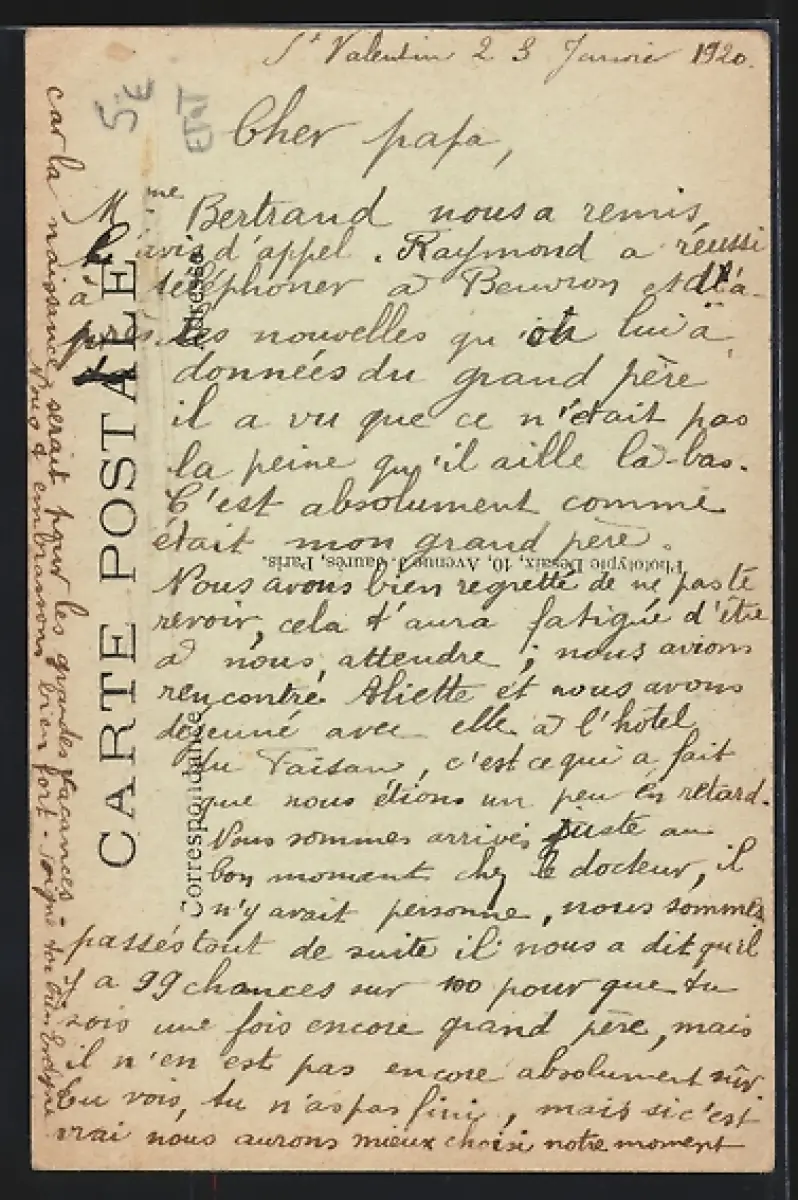 St Valentin 23 Janvier 1920.
Cher papa,
Mme Bertrand nous a remis
l'avis d'appel. Raymond a réussi
à téléphoner à Beuvron et d'a-
près les nouvelles qu'on lui a
données du grand père
il a vu que ce n'était pas
la peine qu'il aille là-bas.
C'est absolument comme
était mon grand père.
Nous avons bien regretté de ne pas te
revoir, cela t'aura fatigué d'être
à nous attendre ; nous avions
rencontré Aliette et nous avons
déjeuné avec elle à l'hôtel
du Faisan, c'est ce qui a fait
que nous étions un peu en retard.
Nous sommes arrivés juste au
bon moment chez le docteur, il
n'y avait personne, nous sommes
passés tout de suite il nous a dit qu'il
y a 99 chances sur 100 pour que tu
sois une fois encore grand père, mais
il n'en est pas encore absolument sûr
Tu vois, tu n'as pas fini, mais si c'est
vrai nous aurons mieux choisi notre moment
car la naissance serait pour les grandes vacances.
Nous t'embrassons bien fort - soigne toi bien
CARTE POSTALE
Correspondance
Adresse
Phototypie Desaix, 10, Avenue J. Jaurès, Paris.
5 €
ETAT